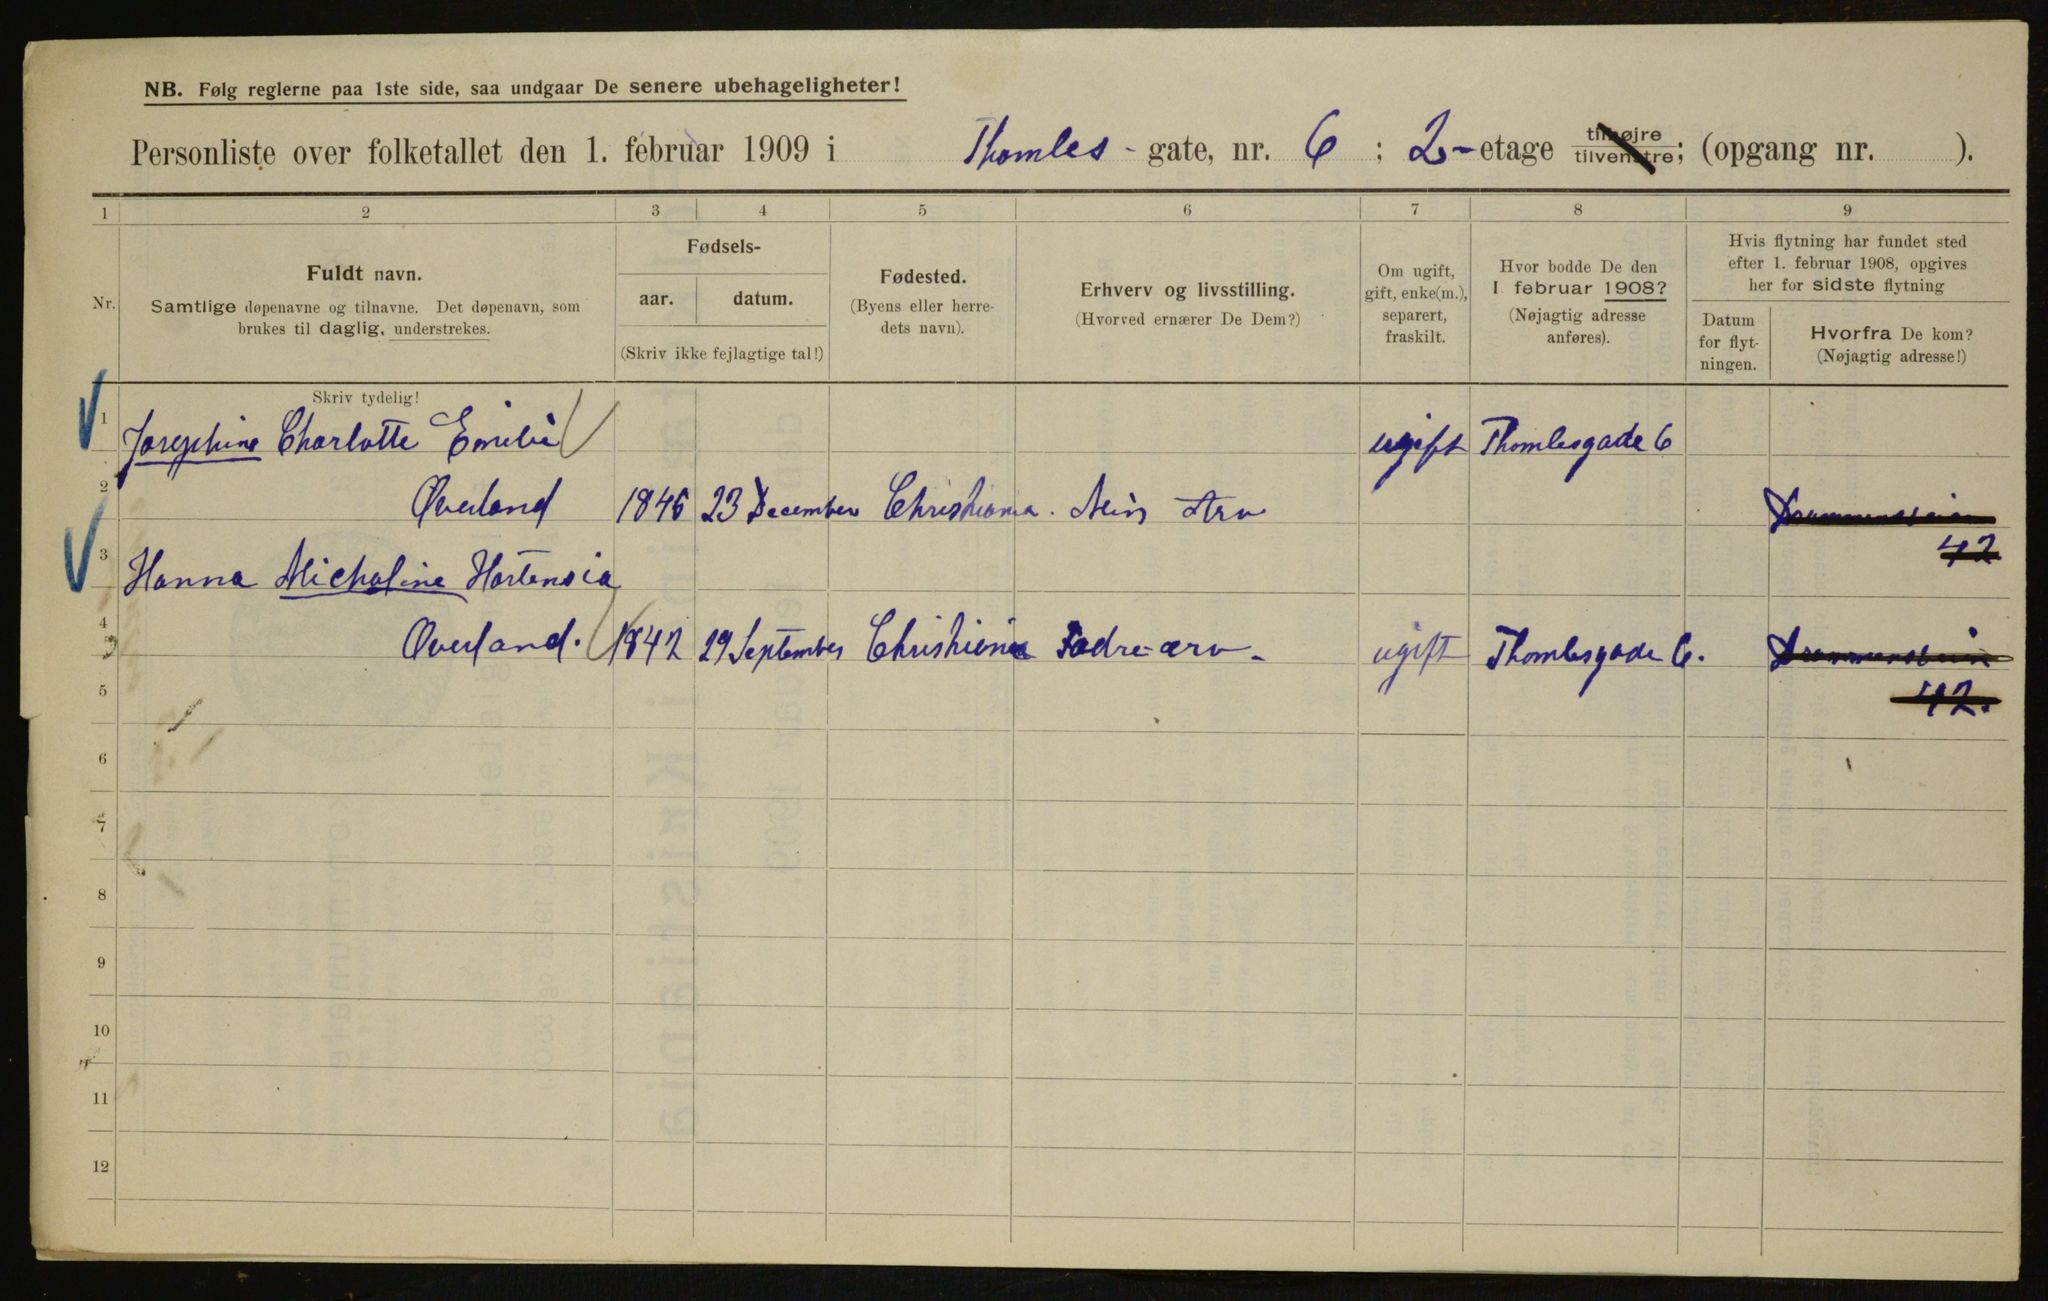 NB. Følg reglerne paa 1ste side, saa undgaar De senere ubehageligheter!
Personliste over folketallet den 1. februar 1909 i Thomles - gate, nr. 6 ; 2-etage tilhøjre tilvenstre; (opgang nr. ).
1 2 3 4 5 6 7 8 9
Nr.
Fuldt navn.
Samtlige døpenavne og tilnavne. Det døpenavn, som
brukes til daglig, understrekes.
Fødsels-
aar. datum.
(Skriv ikke fejlagtige tal!)
Fødested.
(Byens eller herre-
dets navn).
Erhverv og livsstilling.
(Hvorved ernærer De Dem?)
Om ugift,
gift, enke(m.),
separert,
fraskilt.
Hvor bodde De den
1. februar 1908?
(Nøjagtig adresse
anføres).
Hvis flytning har fundet sted
efter 1. februar 1908, opgives
her for sidste flytning
Datum
for flyt-
ningen.
Hvorfra De kom?
(Nøjagtig adresse!)
Skriv tydelig!
1 Josephine Charlotte Emilie ugift Thomlesgade 6
2 Øverland 1846 23 December Christiania. Min Arv Drammensveien
42
3 Hanna Michaline Hortensia
4 Øverland. 1842 29 September Christiania Fædre-arv - ugift Thomlesgade 6. Drammensveien
5 42.
6
7
8
9
10
11
12